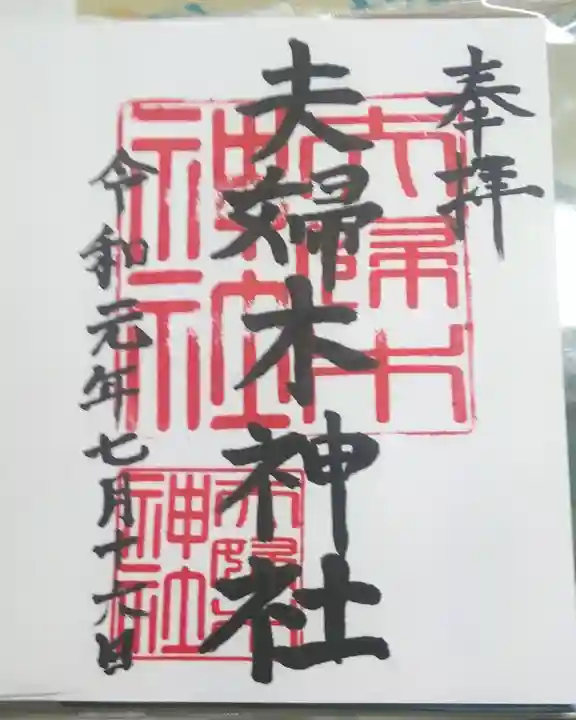 奉拝
夫婦木神社
令和元年七月十六日
夫婦木
神社